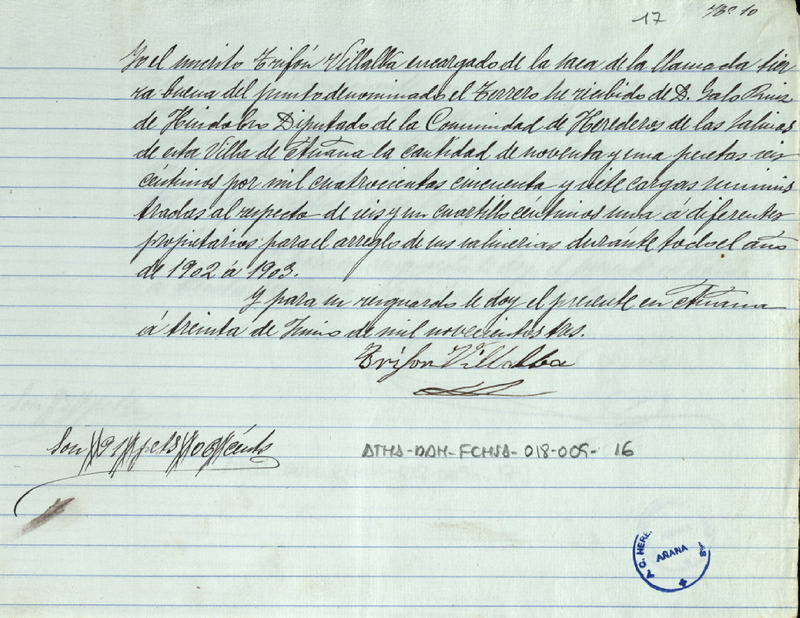 17 Nº 10
Yo el infrito Trifón Villalba encargado de la saca de la llamada tier
ra buena del punto denominado el Terrero he recibido de D. Galo Ruiz
de Huidobro Diputado de la Comunidad de Herederos de las salinas
de esta Villa de Añana la cantidad de noventa y una pesetas seis
céntimos por mil cuatrocientas cincuenta y siete cargas suminis
tradas al respecto de seis y un cuartillo céntimos una á diferentes
propietarios para el arreglo de sus salinerias durante todo el año
de 1902 á 1903.
Y para su resguardo le doy el presente en Añana
á treinta de Junio de mil novecientos tres.
Trifon Villalba
Son 91 pets 06 cénts
ATHA-DAH-FCHSA-018-009-16
C. HERE. AÑANA AS